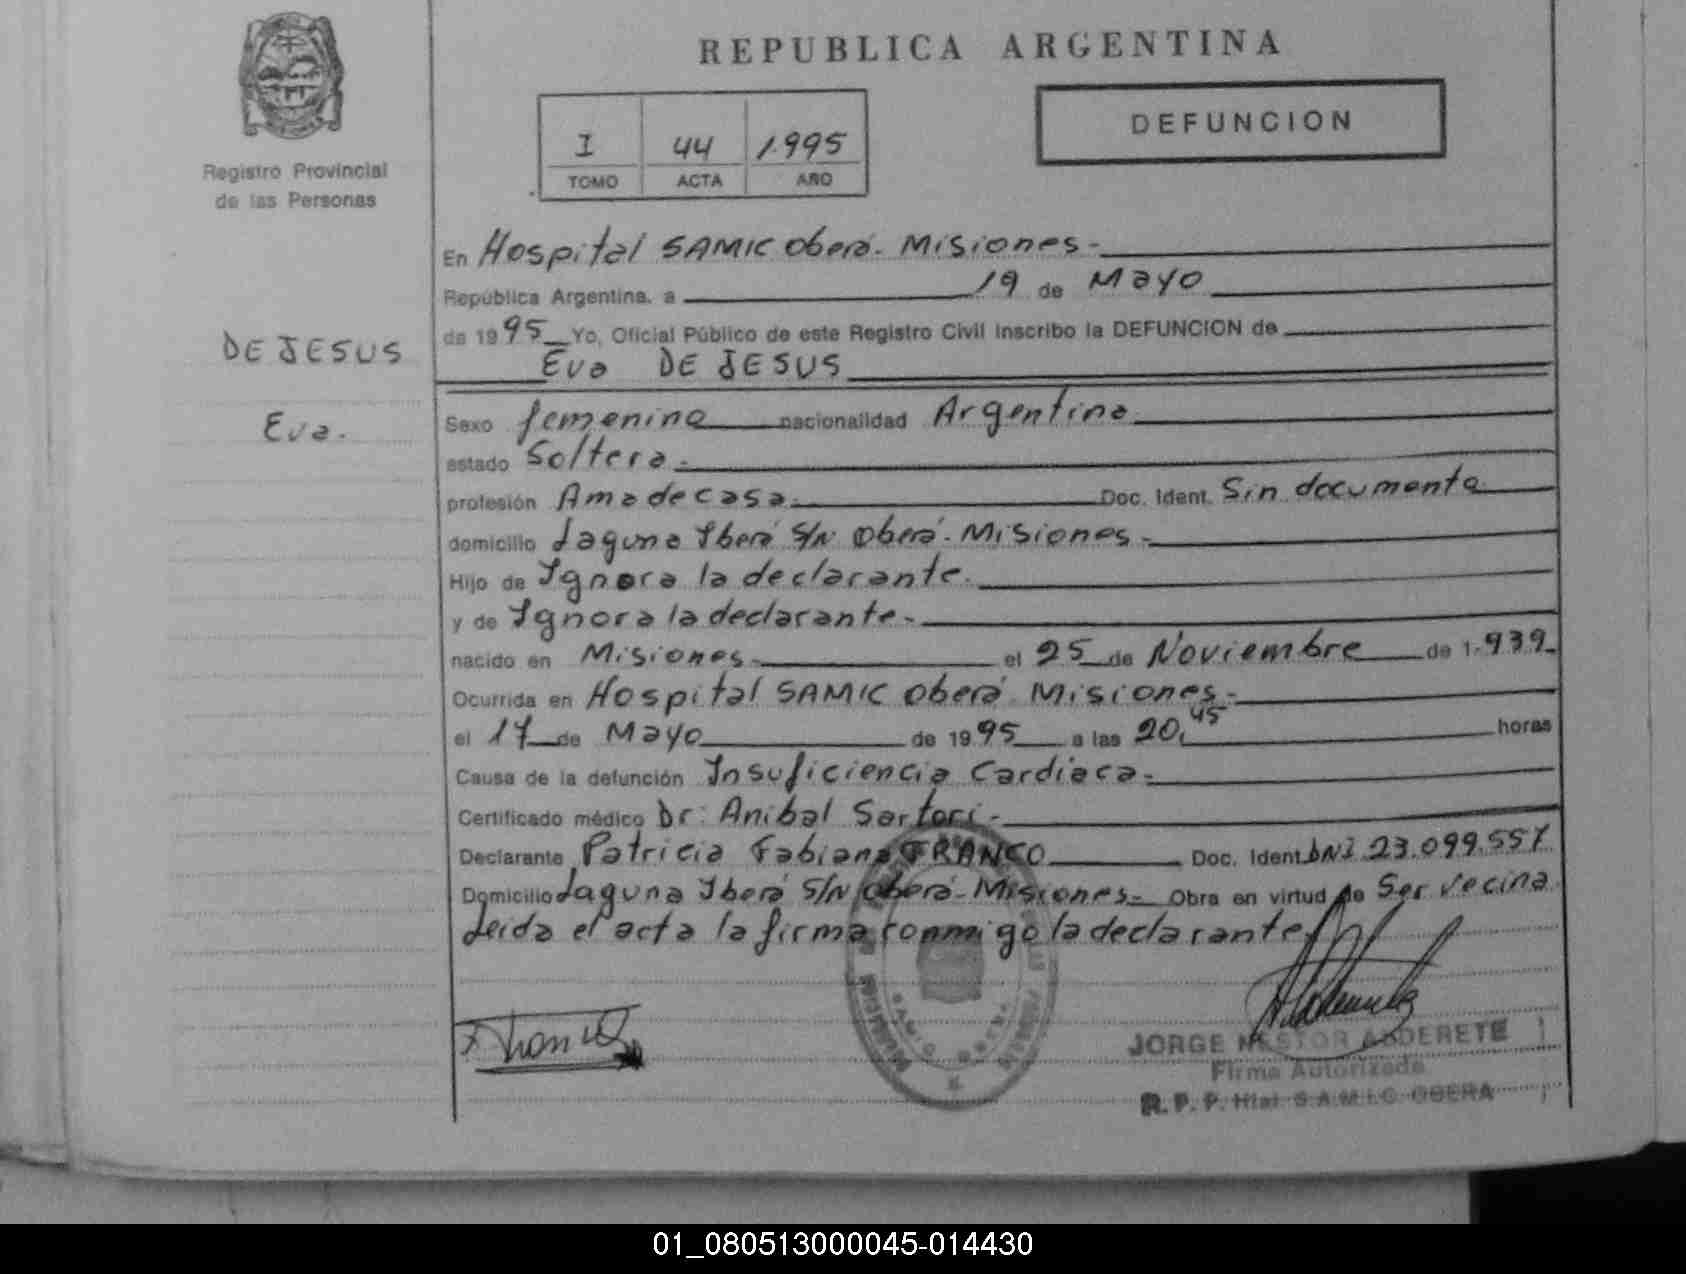 REPUBLICA ARGENTINA
DEFUNCION
I 44 1.995
TOMO ACTA AÑO
Registro Provincial
de las Personas
En Hospital SAMIC Oberá. Misiones-
República Argentina. a 19 de Mayo
de 1995 Yo, Oficial Público de este Registro Civil Inscribo la DEFUNCION de
Eva DE JESUS
DE JESUS
Eva.
Sexo femenino nacionalidad Argentina
estado Soltera-
profesión Ama de casa. Doc. Ident. Sin documento
domicilio Laguna Iberá S/N Oberá. Misiones-
Hijo de Ignora la declarante.
y de Ignora la declarante-
nacido en Misiones. el 25 de Noviembre de 1.939.
Ocurrida en Hospital SAMIC Oberá. Misiones-
el 17 de Mayo de 1995 a las 20,45 horas
Causa de la defunción Insuficiencia Cardiaca-
Certificado médico Dr: Anibal Sartori-
Declarante Patricia Fabiana FRANCO Doc. Ident. DNI 23.099.557
Domicilio Laguna Iberá S/N Oberá-Misiones- Obra en virtud de Ser vecina
Leida el acta la firma conmigo la declarante.
JORGE NESTOR ALDERETE
Firma Autorizada
R. P. P. Htal. S.A.M.I.C. OBERA
01_080513000045-014430